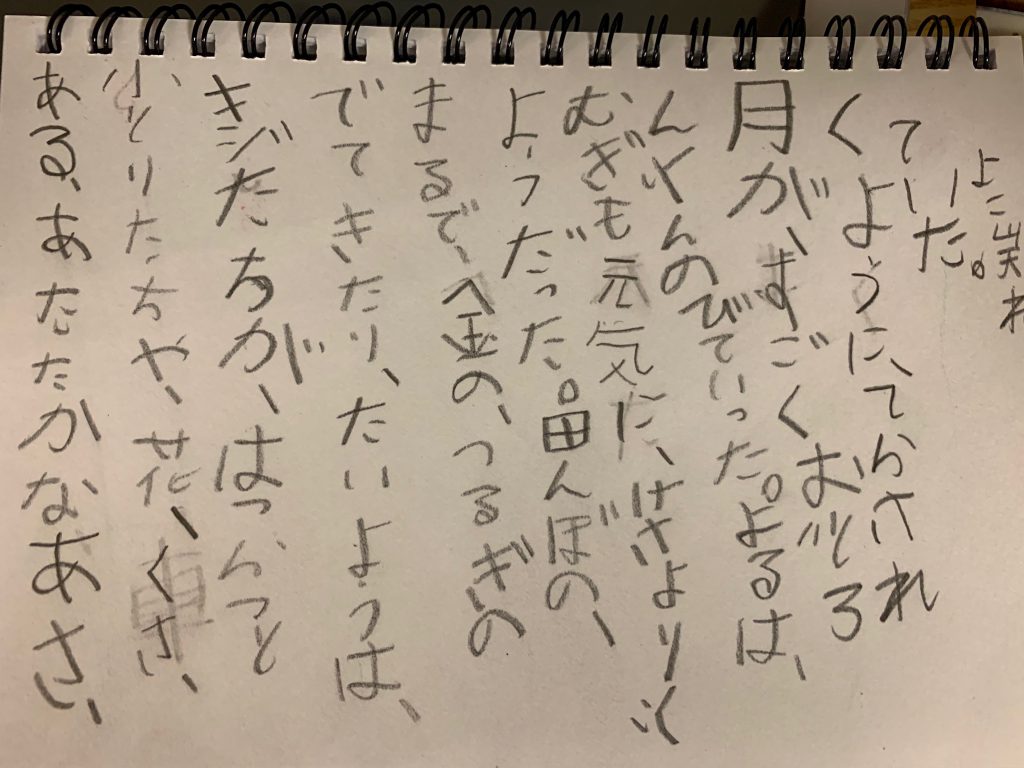 ある、あたたかなあさ、
小とりたちや、花、くさ、
キジだちが、はっ
でてきたり、たいようは、
まるで、金の、つるぎの
ようだった。田んぼの、
むぎも元気に、けさよりぐ
んぐんのびていった。よるは、
月が、ずごくおどろ
くように、てらされ
ていた。